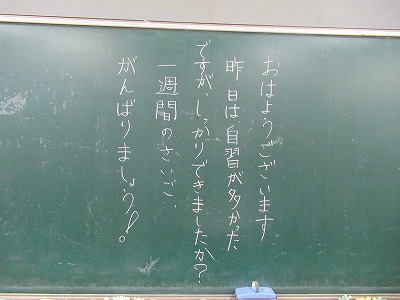 おはようございます
昨日は自習が多かった
ですが、しっかりできましたか？
一週間のさいご、
がんばりましょう！。